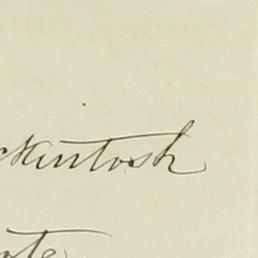 ckintosh
ote